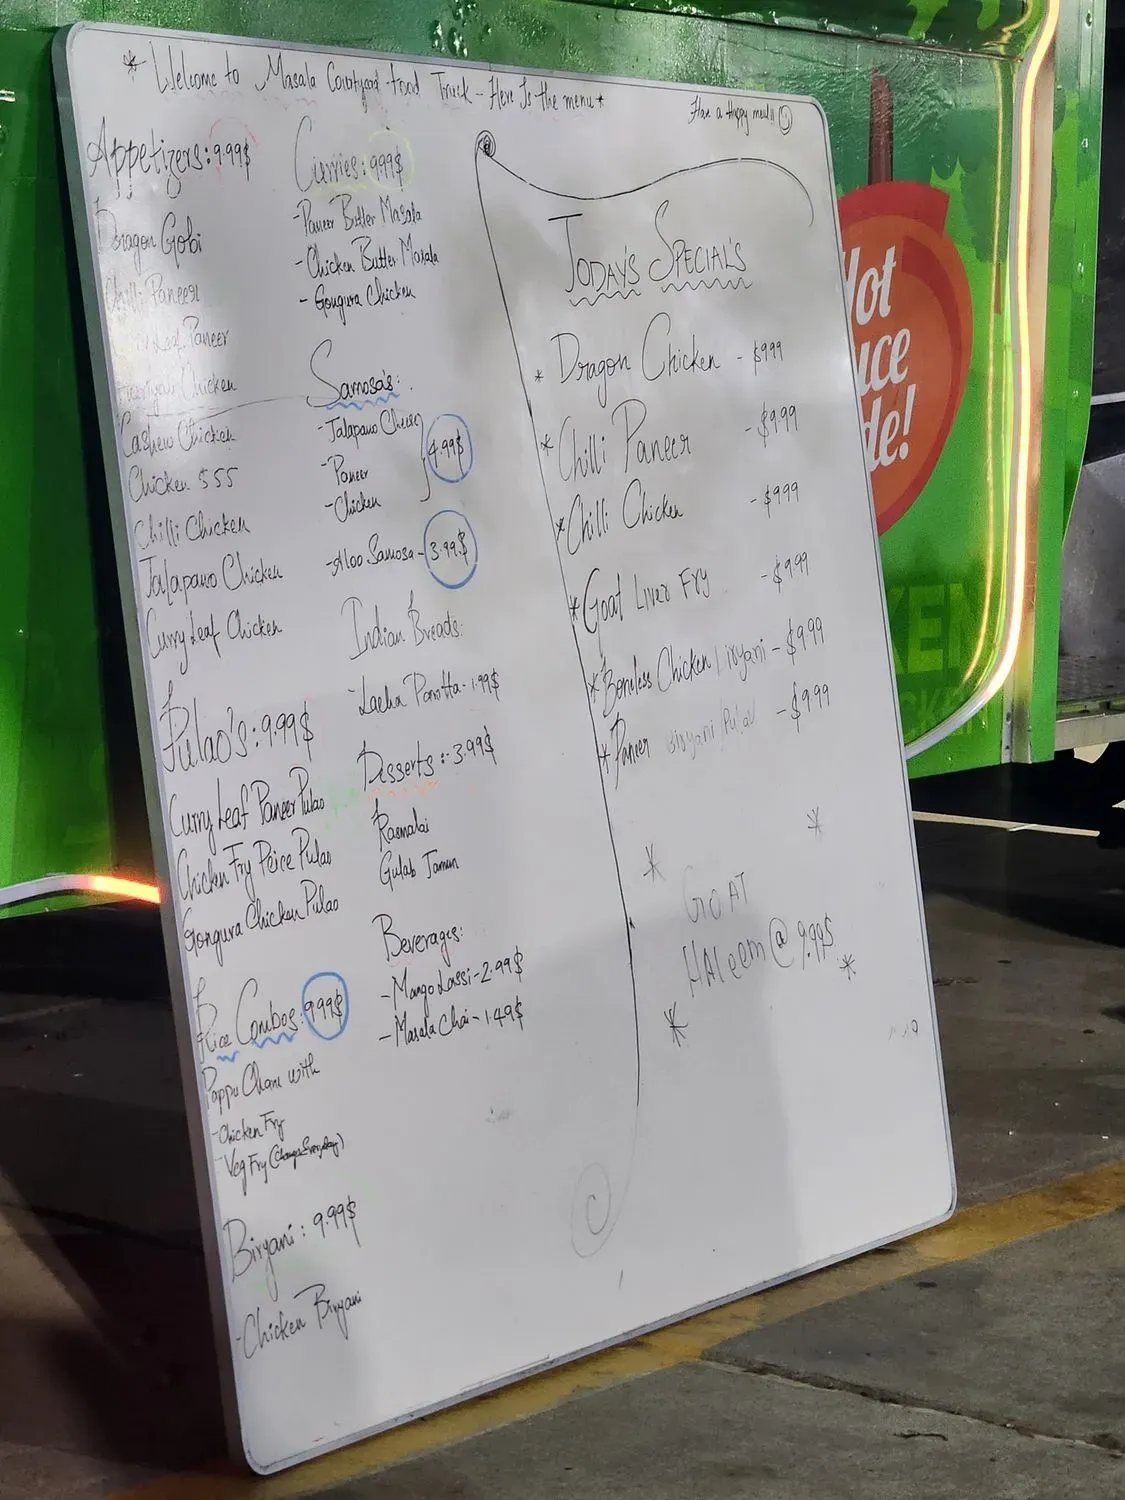 * Welcome to Masala Courtyard Food Truck - Here Is the menu *
Have a Happy meal!!
Appetizers: 9.99$
Dragon Gobi
Chilli Paneer
Curry Leaf Paneer
Hariyali Chicken
Cashew Chicken
Chicken 555
Chilli Chicken
Jalapano Chicken
Curry Leaf Chicken
Pulao's: 9.99$
Curry Leaf Paneer Pulao
Chicken Fry Peice Pulao
Gongura Chicken Pulao
Rice Combos: 9.99$
Pappu Charu with
- Chicken Fry
- Veg Fry (Changes Everyday)
Biryani: 9.99$
- Chicken Biryani
Curries: 9.99$
- Paneer Butter Masala
- Chicken Butter Masala
- Gongura Chicken
Samosa's:
- Jalapano Cheese
- Paneer
- Chicken
4.99$
- Aloo Samosa - 3.99$
Indian Breads:
- Lacha Parotta - 1.99$
Desserts: 3.99$
Rasmalai
Gulab Jamun
Beverages:
- Mango Lassi - 2.99$
- Masala Chai - 1.49$
TODAY'S SPECIAL'S
* Dragon Chicken - $9.99
* Chilli Paneer - $9.99
* Chilli Chicken - $9.99
* Goat Liver Fry - $9.99
* Boneless Chicken Biryani - $9.99
* Paneer Biryani/Pulav - $9.99
GOAT
HAleem @ 9.99$
Hot
de!
KEN